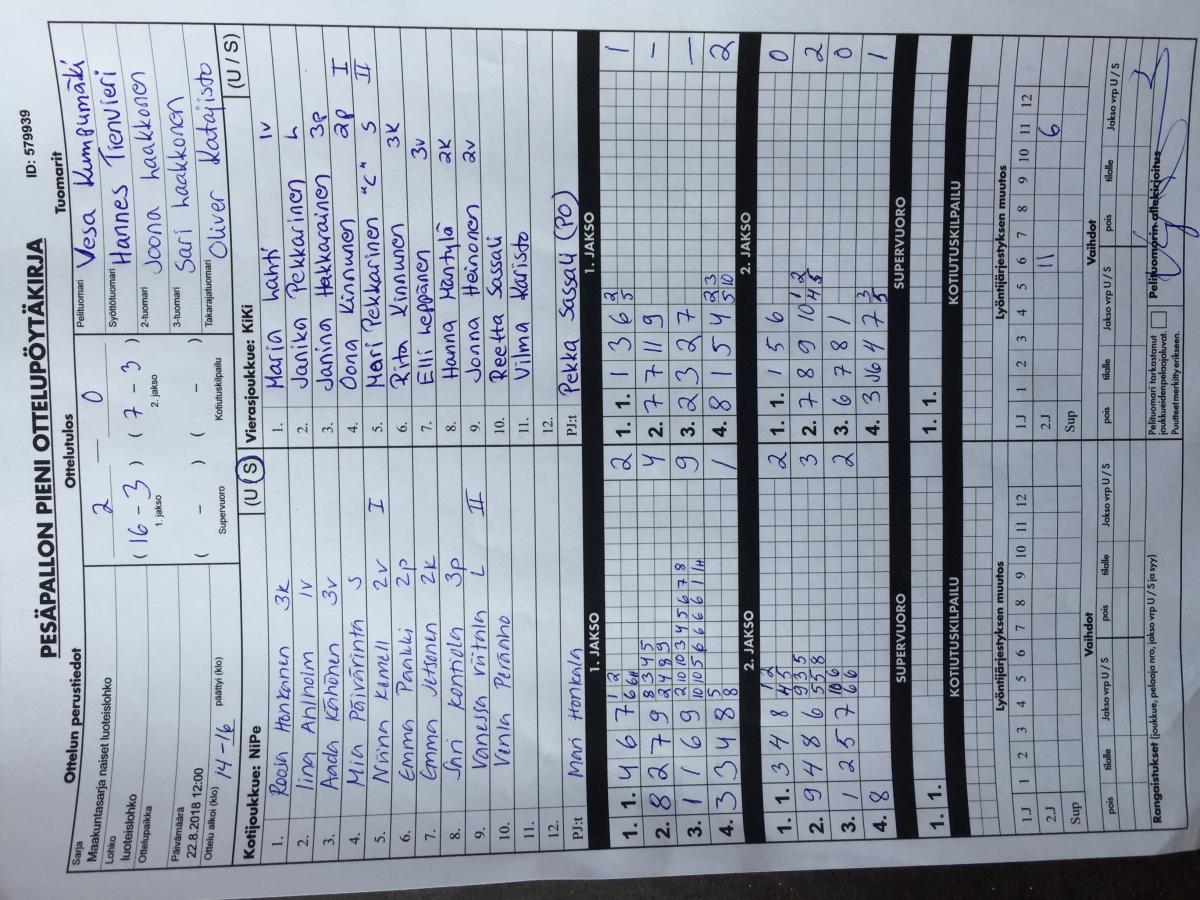 PESÄPALLON PIENI OTTELUPÖYTÄKIRJA ID: 579939
Ottelun perustiedot
Sarja
Maakuntasarja naiset luoteislohko
Lohko
luoteislohko
Ottelupaikka
Päivämäärä
22.8.2018 12:00
Ottelu alkoi (klo) 14-16 päättyi (klo)
Ottelutulos
2 — 0
( 16 - 3 ) ( 7 - 3 )
1. jakso 2. jakso
( - ) ( - )
Supervuoro Kotiutuskilpailu
Tuomarit
Pelituomari Vesa Kumpumäki
Syöttötuomari Hannes Tienvieri
2-tuomari Joona haakkonen
3-tuomari Sari haakkonen
Takarajatuomari Oliver Katajisto
Kotijoukkue: NiPe (U / S)
1. Roosa Honkanen 3k
2. Iina Anlholm 1v
3. Aada Kähönen 3v
4. Mia Päivärinta S
5. Niina Kenell 2v I
6. Emma Paakki 2p
7. Emma Jetsonen 2k
8. Sari Kontiola 3p
9. Vanessa Viitala L II
10. Venla Peranho
11.
12.
PJ:t Mari Honkala
Vierasjoukkue: KiKi (U / S)
1. Maria Lahti 1v
2. Janika Pekkarinen L
3. Janina Hakkarainen 3p
4. Oona Kinnunen 2p I
5. Mari Pekkarinen "C" S II
6. Rita Kinnunen 3k
7. Elli Leppänen 3v
8. Hanna Mäntylä 2k
9. Jonna Heinonen 2v
10. Reetta Sassali
11. Vilma Karisto
12.
PJ:t Pekka Sassali (PO)
1. JAKSO 1. JAKSO
1. 1. 4 6 7 2
8 2. 2 7 9 4
1 3. 1 6 9 9
3 4. 3 4 8 1
1. 1. 1 3 6 1
2. 7 7 11 9 –
3. 2 3 2 7 –
4. 8 1 5 4 2
2. JAKSO 2. JAKSO
1. 1. 3 4 8 2
9 2. 4 8 6 3
1 3. 2 5 7 2
8 4.
1. 1. 1 5 6 0
2. 7 8 9 10 2
3. 6 7 8 1 0
4. 3 4 7 1
SUPERVUORO SUPERVUORO
1. 1. 1. 1.
KOTIUTUSKILPAILU KOTIUTUSKILPAILU
Lyöntijärjestyksen muutos Lyöntijärjestyksen muutos
1.J 1 2 3 4 5 6 7 8 9 10 11 12 1.J 1 2 3 4 5 6 7 8 9 10 11 12
2.J 2.J 11 6
Sup Sup
Vaihdot Vaihdot
pois tilalle Jakso vrp U / S pois tilalle Jakso vrp U / S pois tilalle Jakso vrp U / S pois tilalle Jakso vrp U / S
Rangaistukset (joukkue, pelaaja nro, jakso vrp U / S ja syy)
Pelituomari tarkastanut
joukkueiden pelaajaluvat.
Puutteet merkitty erikseen.
Pelituomarin allekirjoitus